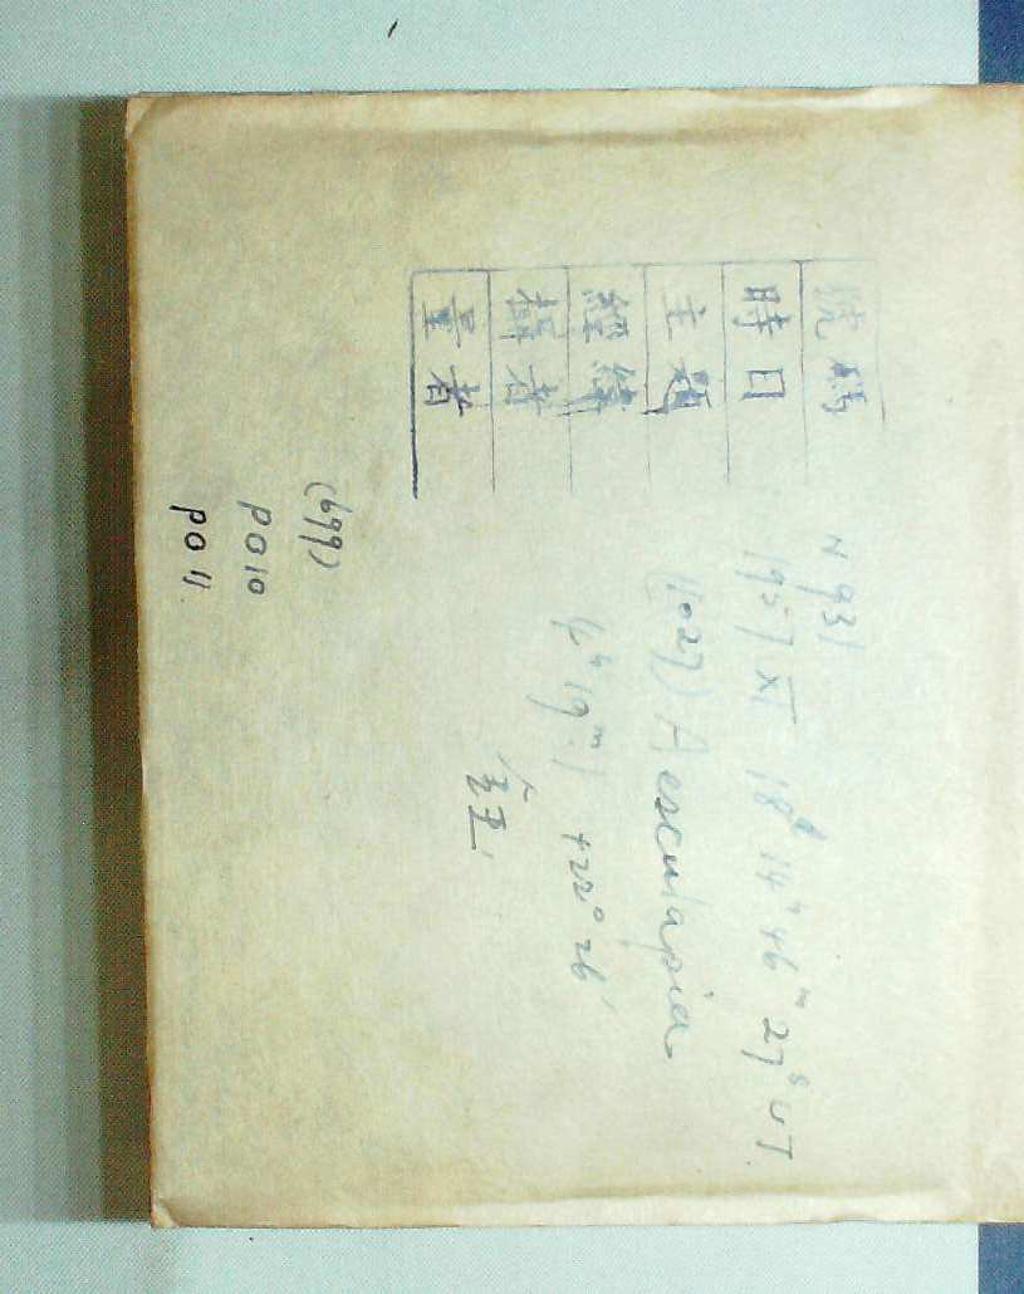 號碼 N 931
時日 1957 XI 18ᵈ 14ʰ 46ᵐ 27ˢ UT
主題 (1027) Aesculapia
經緯 4ʰ 19ᵐ.1 +22° 26′
攝者
量者
(699)
PO10
PO11.